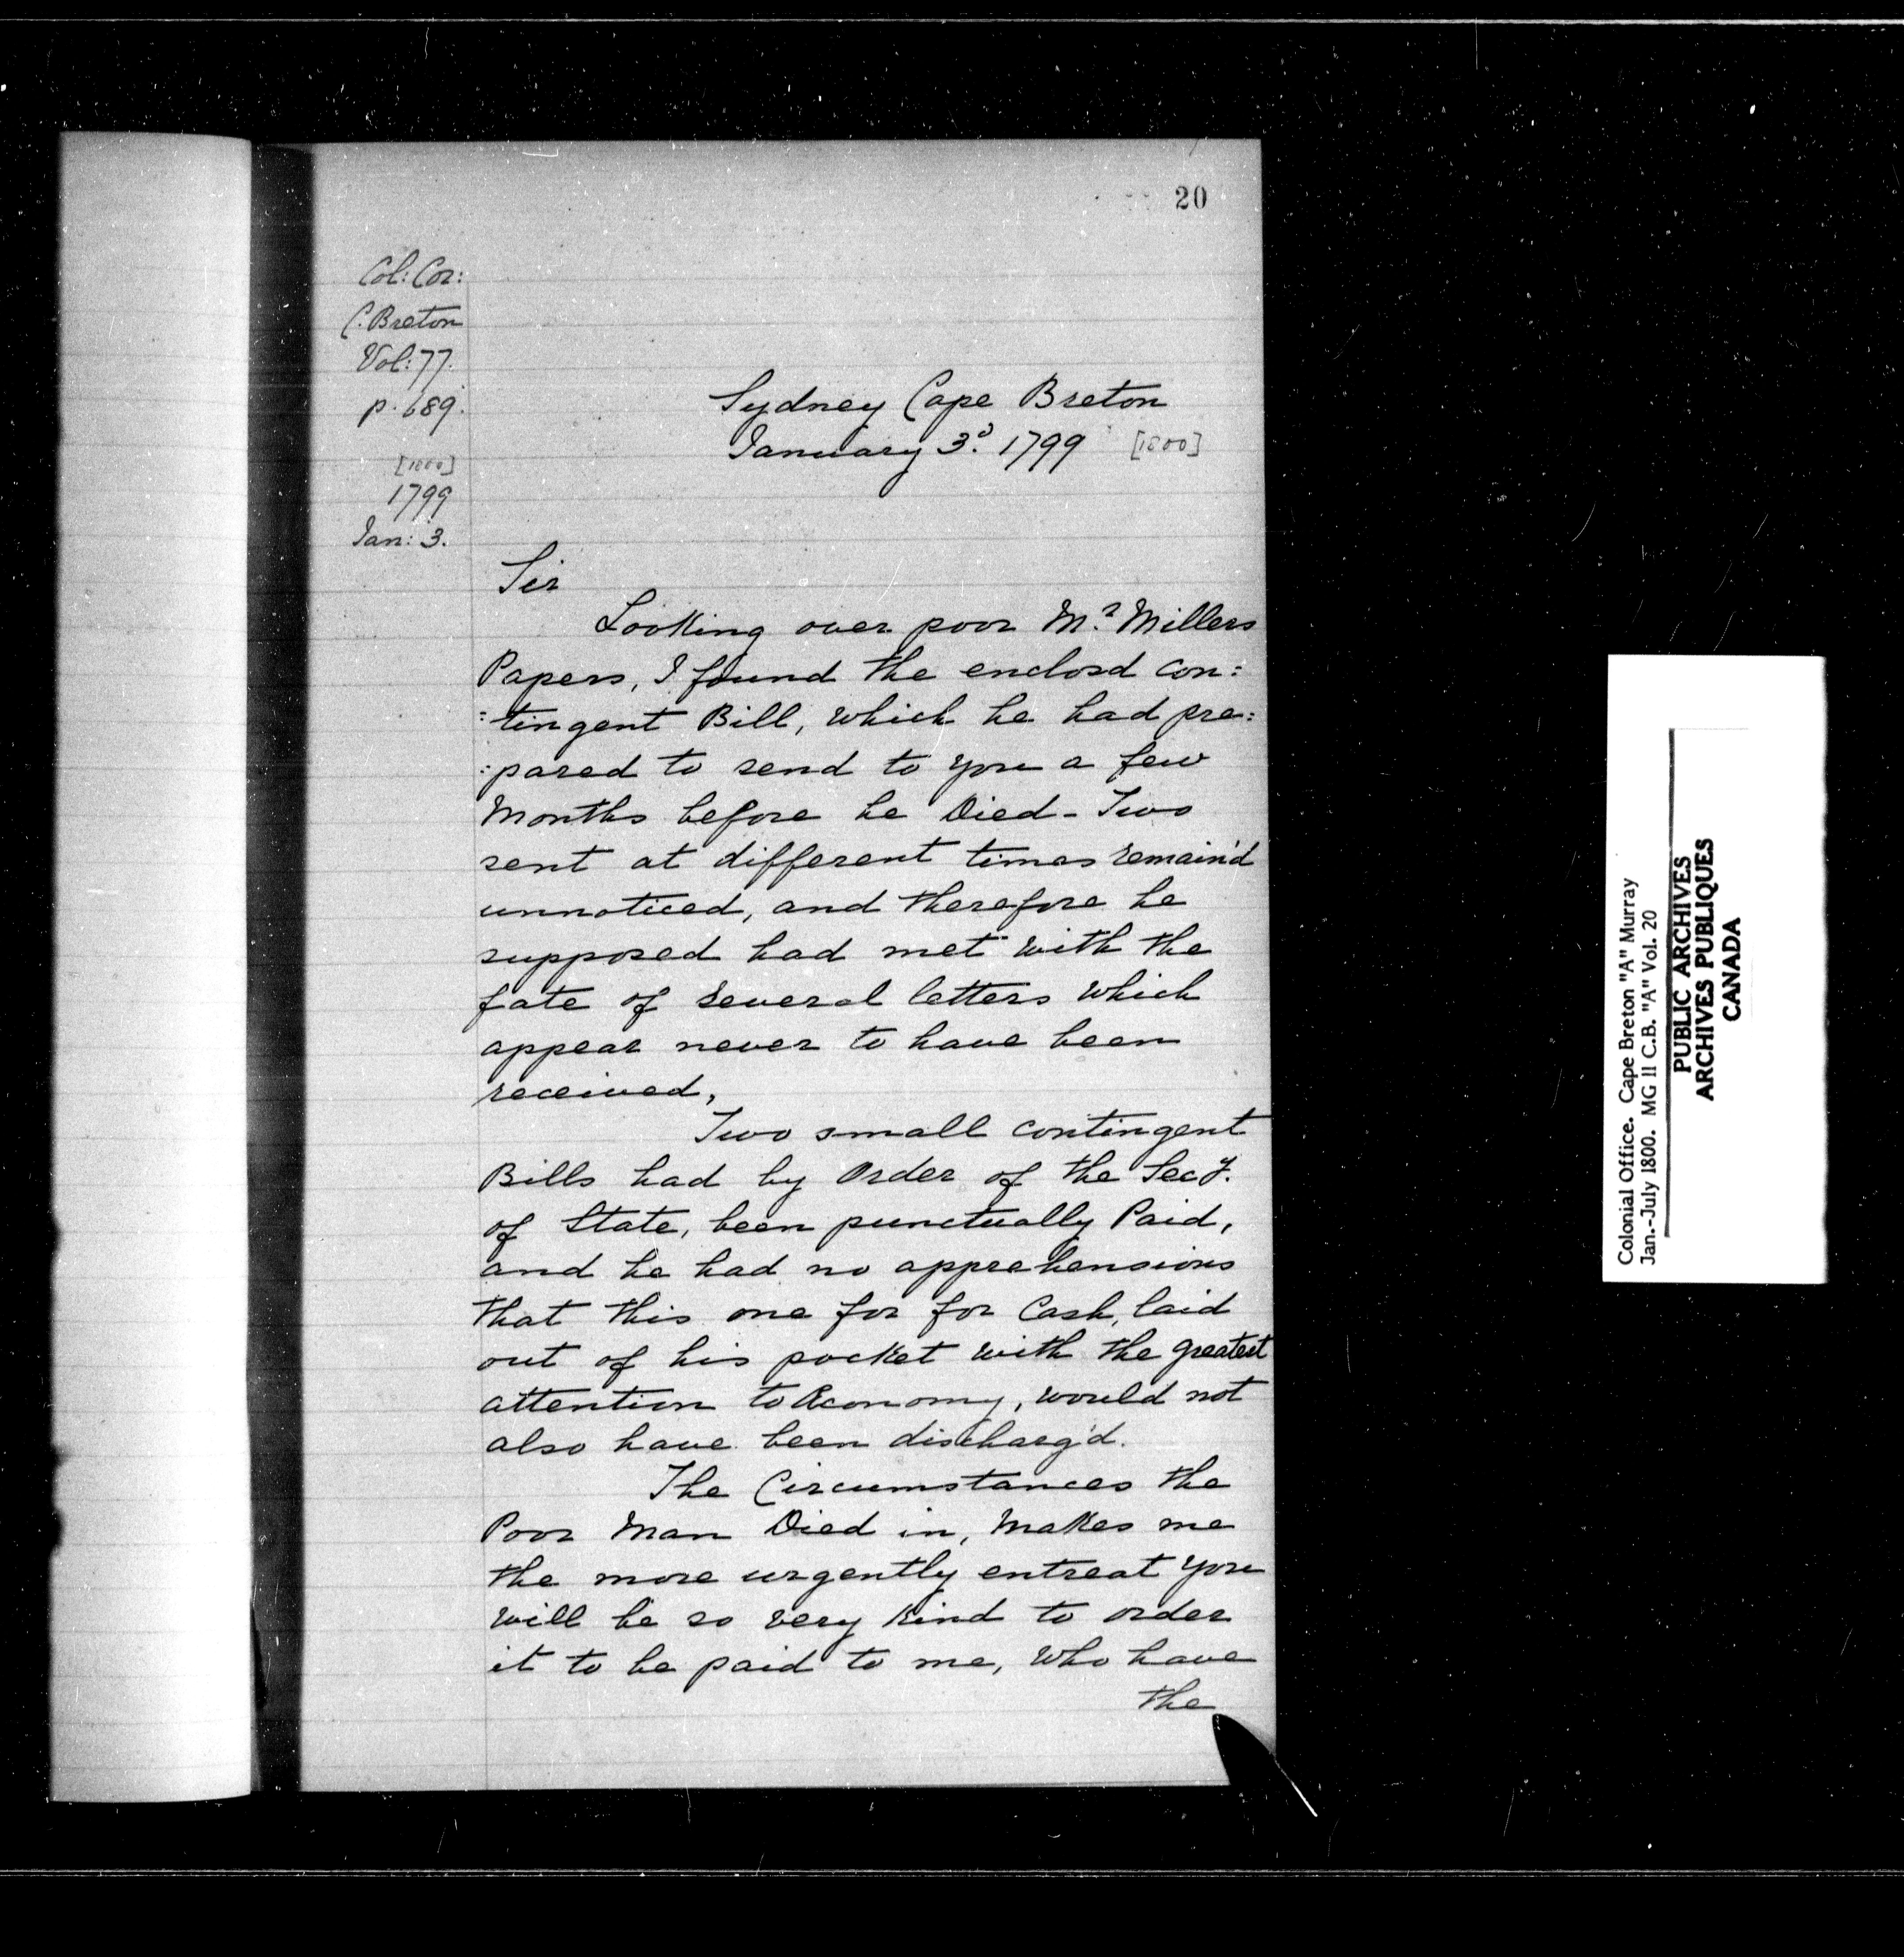 20
Col: Cor:
C. Breton
Vol: 77.
p. 689.
[1800]
1799
Jan: 3.
Sydney Cape Breton
January 3d. 1799 [1800]
Sir
Looking over poor Mr. Millers
Papers, I found the enclosd con:
:tingent Bill, which he had pre:
:pared to send to you a few
Months before he Died - Two
sent at different times remain'd
unnoticed, and therefore he
supposed had met with the
fate of several letters which
appear never to have been
received,
Two small contingent
Bills had by Order of the Secy.
of State, been punctually Paid,
and he had no apprehensions
that this one for for Cash, laid
out of his pocket with the greatest
attention to Œconomy, would not
also have been discharg'd.
The Circumstances the
Poor Man Died in, Makes me
the more urgently entreat you
will be so very kind to order
it to be paid to me, Who have
the
Colonial Office. Cape Breton "A" Murray
Jan.-July 1800. MG 11 C.B. "A" Vol. 20
PUBLIC ARCHIVES
ARCHIVES PUBLIQUES
CANADA